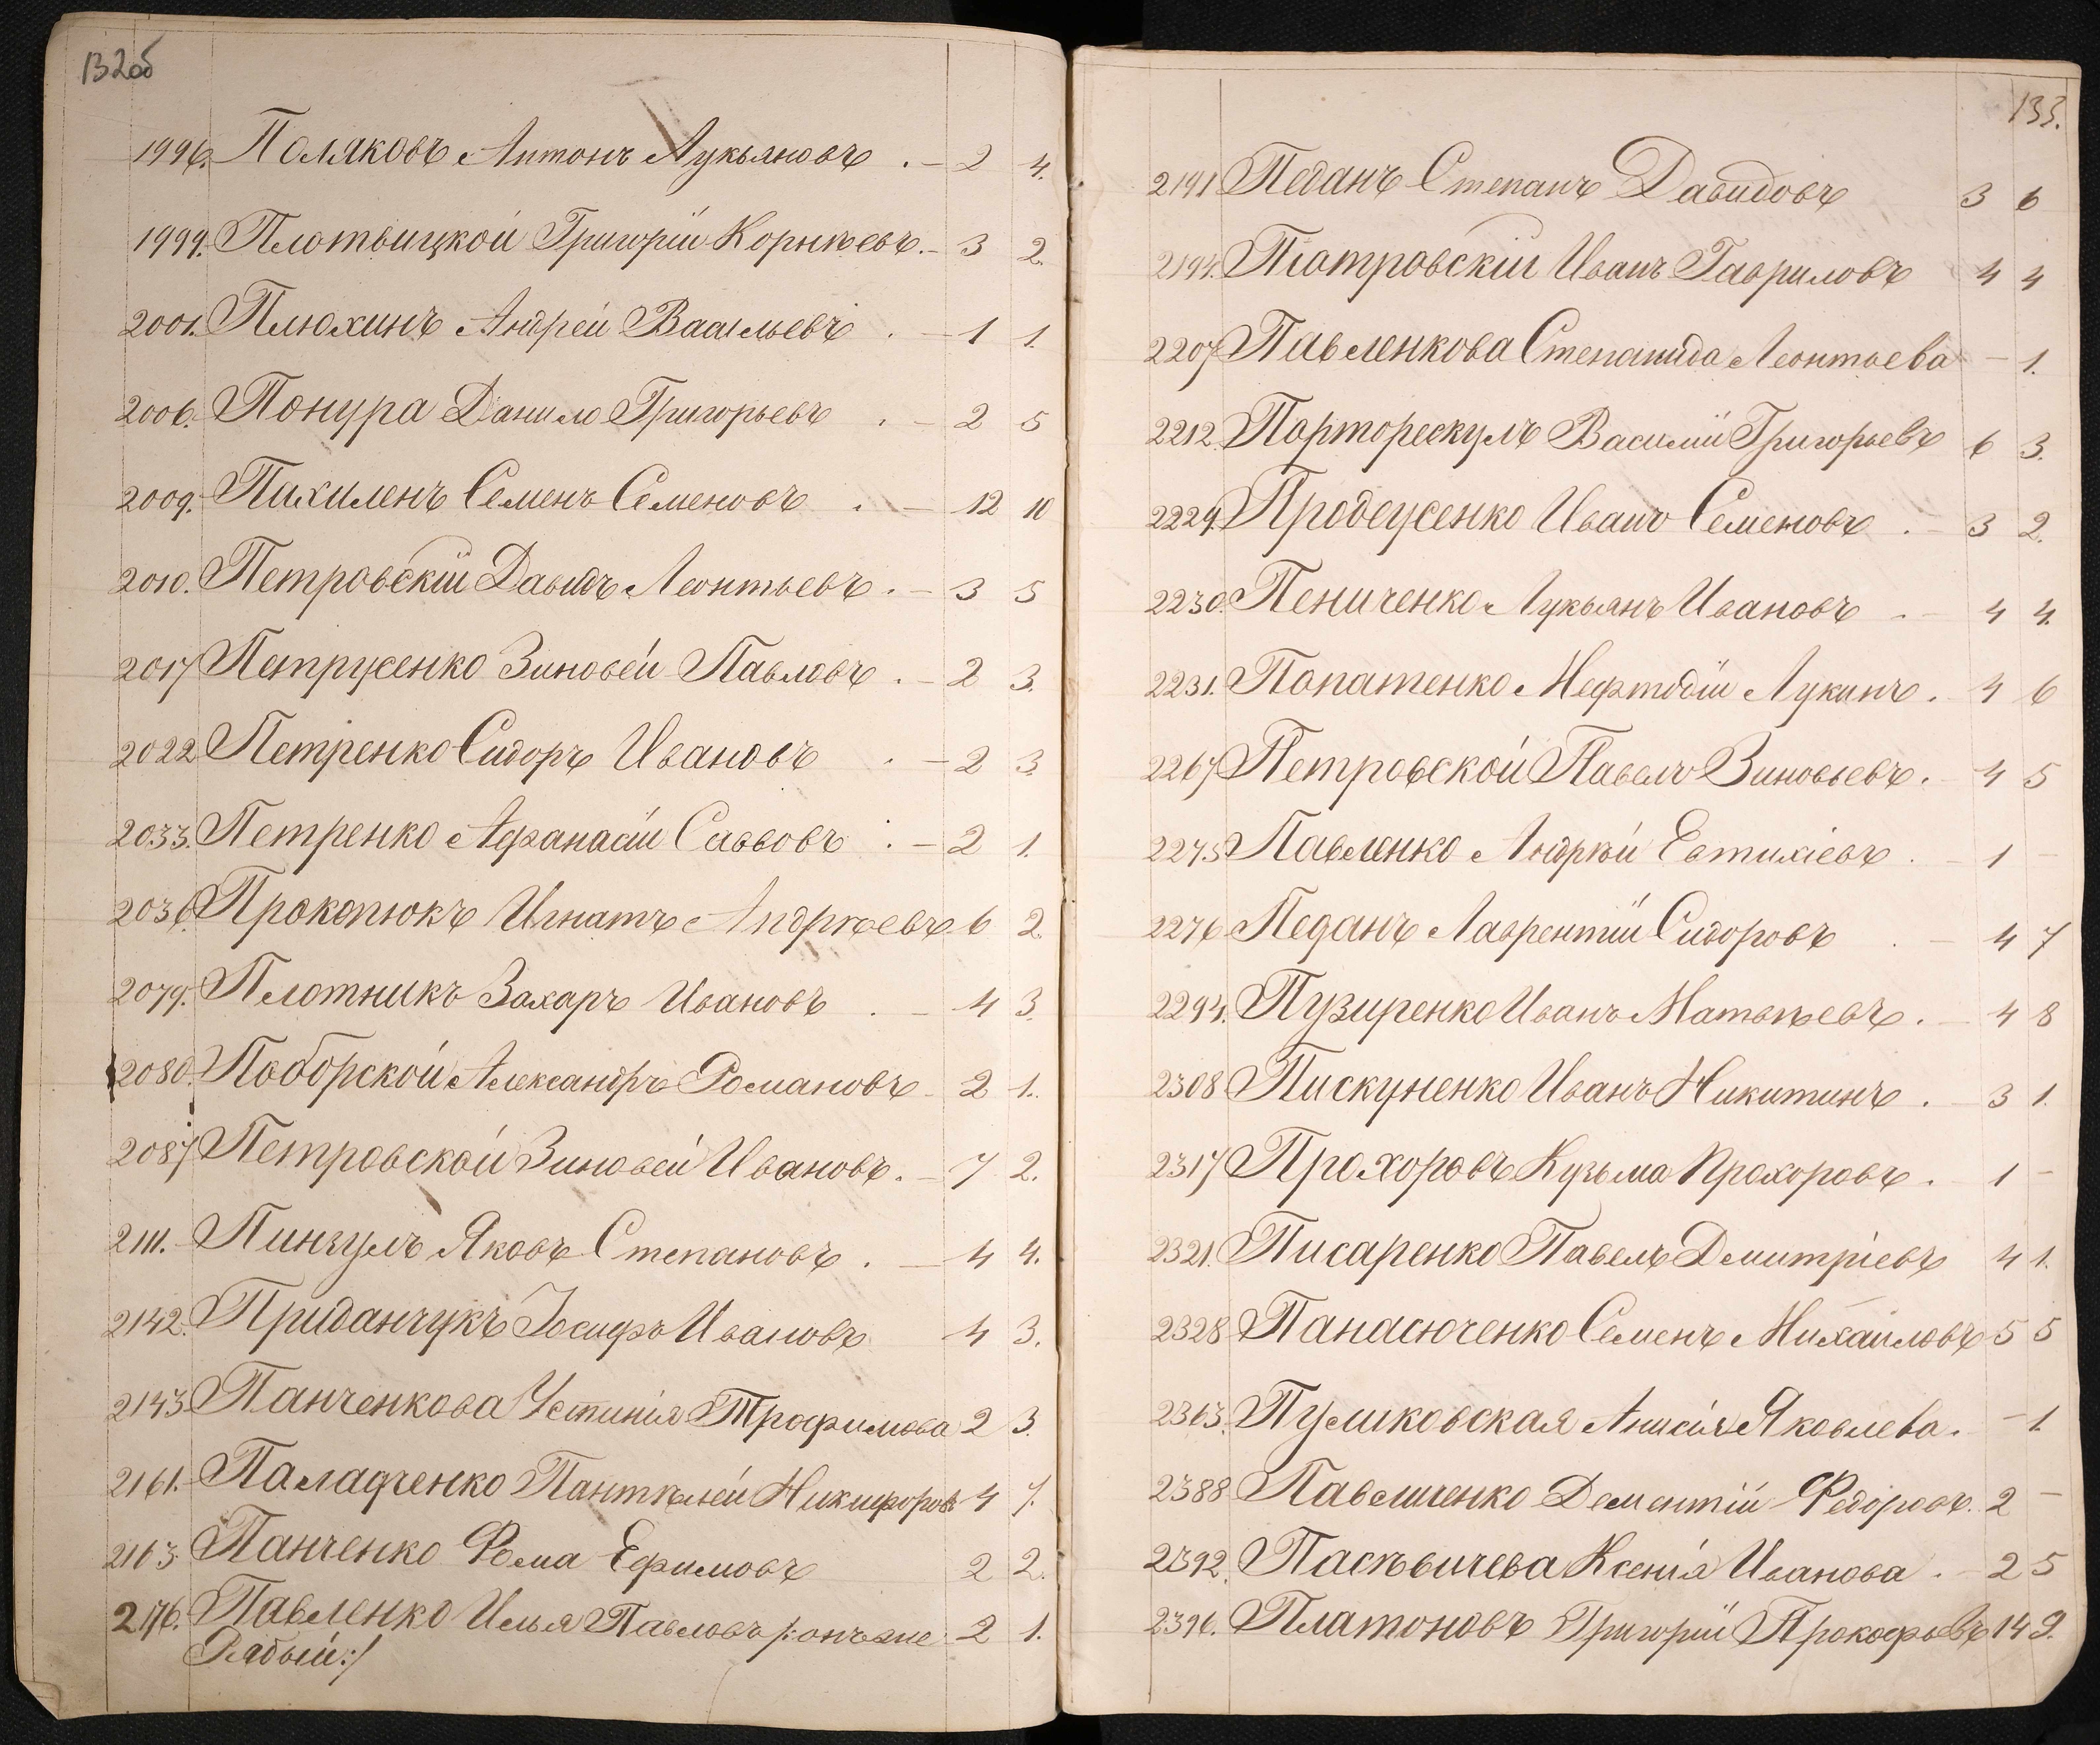 132об
1996. Поляковъ Антонъ Лукьяновъ . — 2 4.
1999. Плотвицкой Григорій Корнѣевъ. — 3 2.
2001. Плюхинъ Андрей Васильевъ . — 1 1.
2006. Понура Данило Григорьевъ . — 2 5
2009. Пахиленъ Семенъ Семеновъ . — 12 10
2010. Петровскій Давидъ Леонтьевъ . — 3 5
2017 Петрусенко Зиновей Павловъ . — 2 3.
2022 Петренко Сидоръ Ивановъ . — 2 3.
2033. Петренко Афанасій Саввовъ . — 2 1.
2036. Прокопюкъ Игнатъ Андрѣевъ 6 2.
2079. Плотникъ Захаръ Ивановъ . — 4 3.
2080. Поборской Александръ Романовъ — 2 1.
2087 Петровской Зиновей Ивановъ. — 7 2.
2111. Пинзулъ Яковъ Степановъ . — 4 4.
2142. Приданчукъ Іосифъ Ивановъ 4 3.
2143 Панченкова Устинія Трофимова 2 3.
2161. Паладченко Пантѣлей Никифоровъ 4 7.
2163. Панченко Фома Ефимовъ 2 2.
2176. Павленко Илья Павловъ /: онъ же 2 1.
Рябый :/
133.
2191 Педанъ Степанъ Давидовъ 3 6
2194. Піотровскій Иванъ Гавриловъ 4 4
2207 Павленкова Степанида Леонтьева — 1.
2212. Портерескулъ Василій Григорьевъ 6 3.
2229. Продеусенко Иванъ Семеновъ . — 3 2.
2230. Пениченко Лукьянъ Ивановъ . — 4 4.
2231. Попатенко Мефтодій Лукинъ . — 4 6
2267 Петровской Павелъ Зиновьевъ. — 4 5
2275. Павленко Андрѣй Евтихіевъ . — 1 —
2276 Педанъ Лаврентій Сидоровъ . — 4 7
2294. Пузиренко Иванъ Матвѣевъ . — 4 8
2308 Пискуненко Иванъ Никитинъ . — 3 1.
2317 Прохоровъ Кузьма Прохоровъ . 1 —
2321. Писаренко Павелъ Дмитріевъ 4 1.
2328 Панасюченко Семенъ Михайловъ 5 5
2363. Пуликовская Анисія Яковлева. — 1.
2388 Павличенко Дементій Федоровъ. 2 —
2392. Пасѣвичева Ксенія Иванова . — 2 5
2396. Платоновъ Григорій Прокофьевъ 14 9.